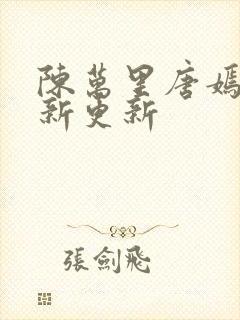 陳萬里唐嫣
新更新
張劍飛